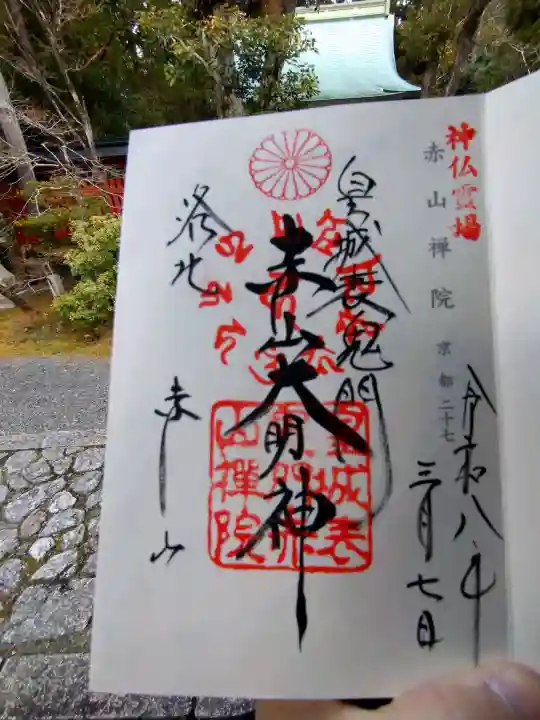 神仏霊場
赤山禅院
京都二十七
令和八年
三月七日
皇城表鬼門
赤山大明神
洛北
赤山
皇城表
山禅院